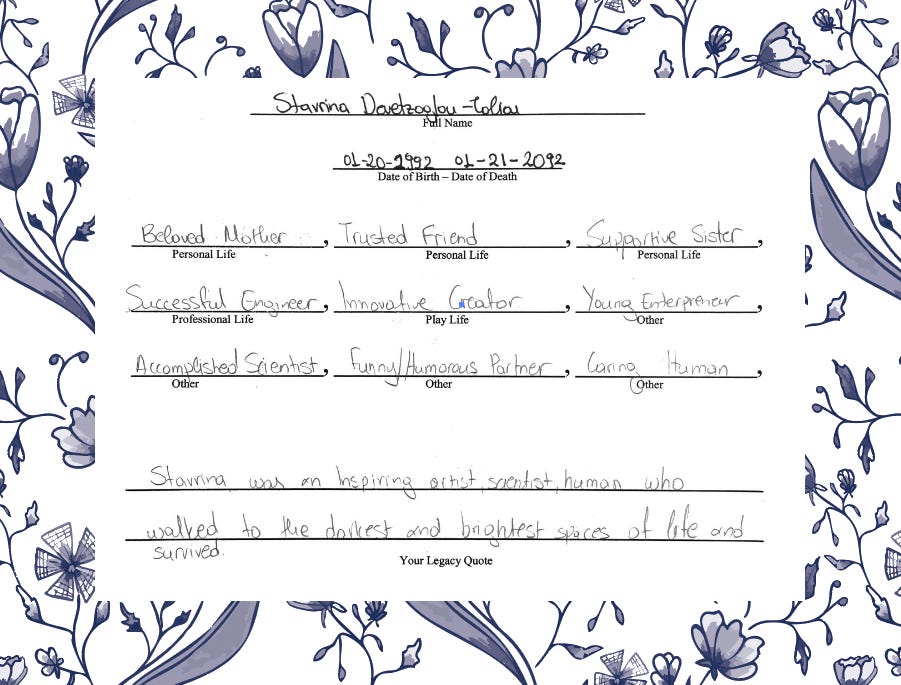 Stavrina Dovetzoglou-Toliou
Full Name
01-20-1992 01-21-2092
Date of Birth – Date of Death
Beloved Mother, Trusted Friend, Supportive Sister,
Personal Life Personal Life Personal Life
Successful Engineer, Innovative Creator, Young Enterpreneur,
Professional Life Play Life Other
Accomplished Scientist, Funny/Humorous Partner, Caring Human,
Other Other Other
Stavrina was an Inspiring artist, scientist, human who
walked to the darkest and brightest spaces of life and
survived.
Your Legacy Quote